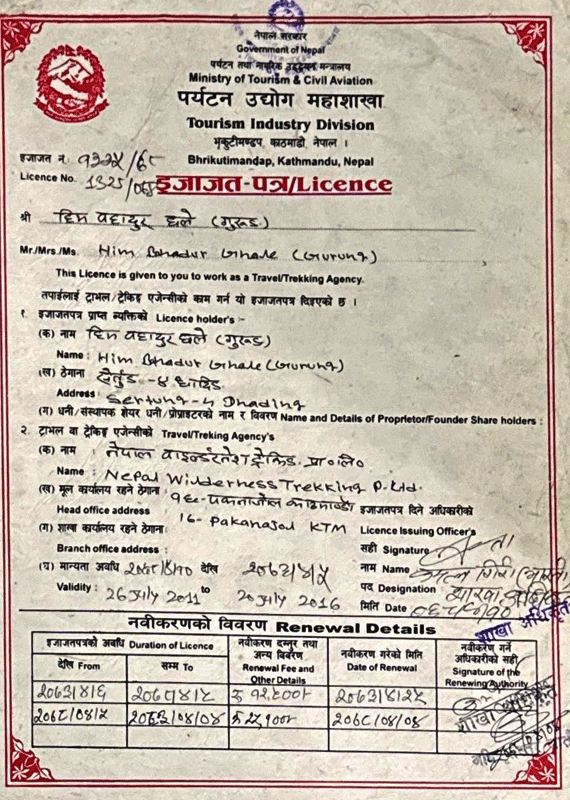 नेपाल सरकार
Government of Nepal
पर्यटन तथा नागरिक उड्डयन मन्त्रालय
Ministry of Tourism & Civil Aviation
पर्यटन उद्योग महाशाखा
Tourism Industry Division
भृकुटीमण्डप, काठमाडौं, नेपाल ।
Bhrikutimandap, Kathmandu, Nepal
इजाजत नं. १३२५/६८
Licence No. 1325/068
इजाजत-पत्र/Licence
श्री हिम बहादुर घले (गुरुङ)
Mr./Mrs./Ms. Him Bhadur Ghale (Gurung)
This Licence is given to you to work as a Travel/Trekking Agency.
तपाईलाई ट्राभल/ट्रेकिङ्ग एजेन्सीको काम गर्न यो इजाजतपत्र दिइएको छ ।
१. इजाजतपत्र प्राप्त व्यक्तिको Licence holder's :-
(क) नाम हिम बहादुर घले (गुरुङ)
Name : Him Bhadur Ghale (Gurung)
(ख) ठेगाना सेर्तुङ -४ धादिङ
Address : Sertung-4 Dhading
(ग) धनी/संस्थापक शेयर धनी/प्रोप्राइटरको नाम र विवरण Name and Details of Proprietor/Founder Share holders :
२. ट्राभल वा ट्रेकिङ्ग एजेन्सीको Travel/Treking Agency's
(क) नाम : नेपाल वाइल्डरनेश ट्रेकिङ प्रा०लि०
Name : Nepal Wilderness Trekking P. Ltd.
(ख) मूल कार्यालय रहने ठेगाना १६-पकनाजोल काठमाडौं इजाजतपत्र दिने अधिकारीको
Head office address 16- Pakanajol KTM Licence Issuing Officer's
(ग) शाखा कार्यालय रहने ठेगाना: सही Signature
Branch office address : नाम Name
(घ) मान्यता अवधि २०६८/४/१० देखि २०७३/४/५ पद Designation
Validity : 26 July 2011 to 20 July 2016 मिति Date
शाखा अधिकृत
नवीकरणको विवरण Renewal Details
इजाजतपत्रको अवधि Duration of Licence
नवीकरण दस्तुर तथा अन्य विवरण Renewal Fee and Other Details
नवीकरण गरेको मिति Date of Renewal
नवीकरण गर्ने अधिकारीको सही Signature of the Renewing Authority
देखि From सम्म To
शाखा अधिकृत